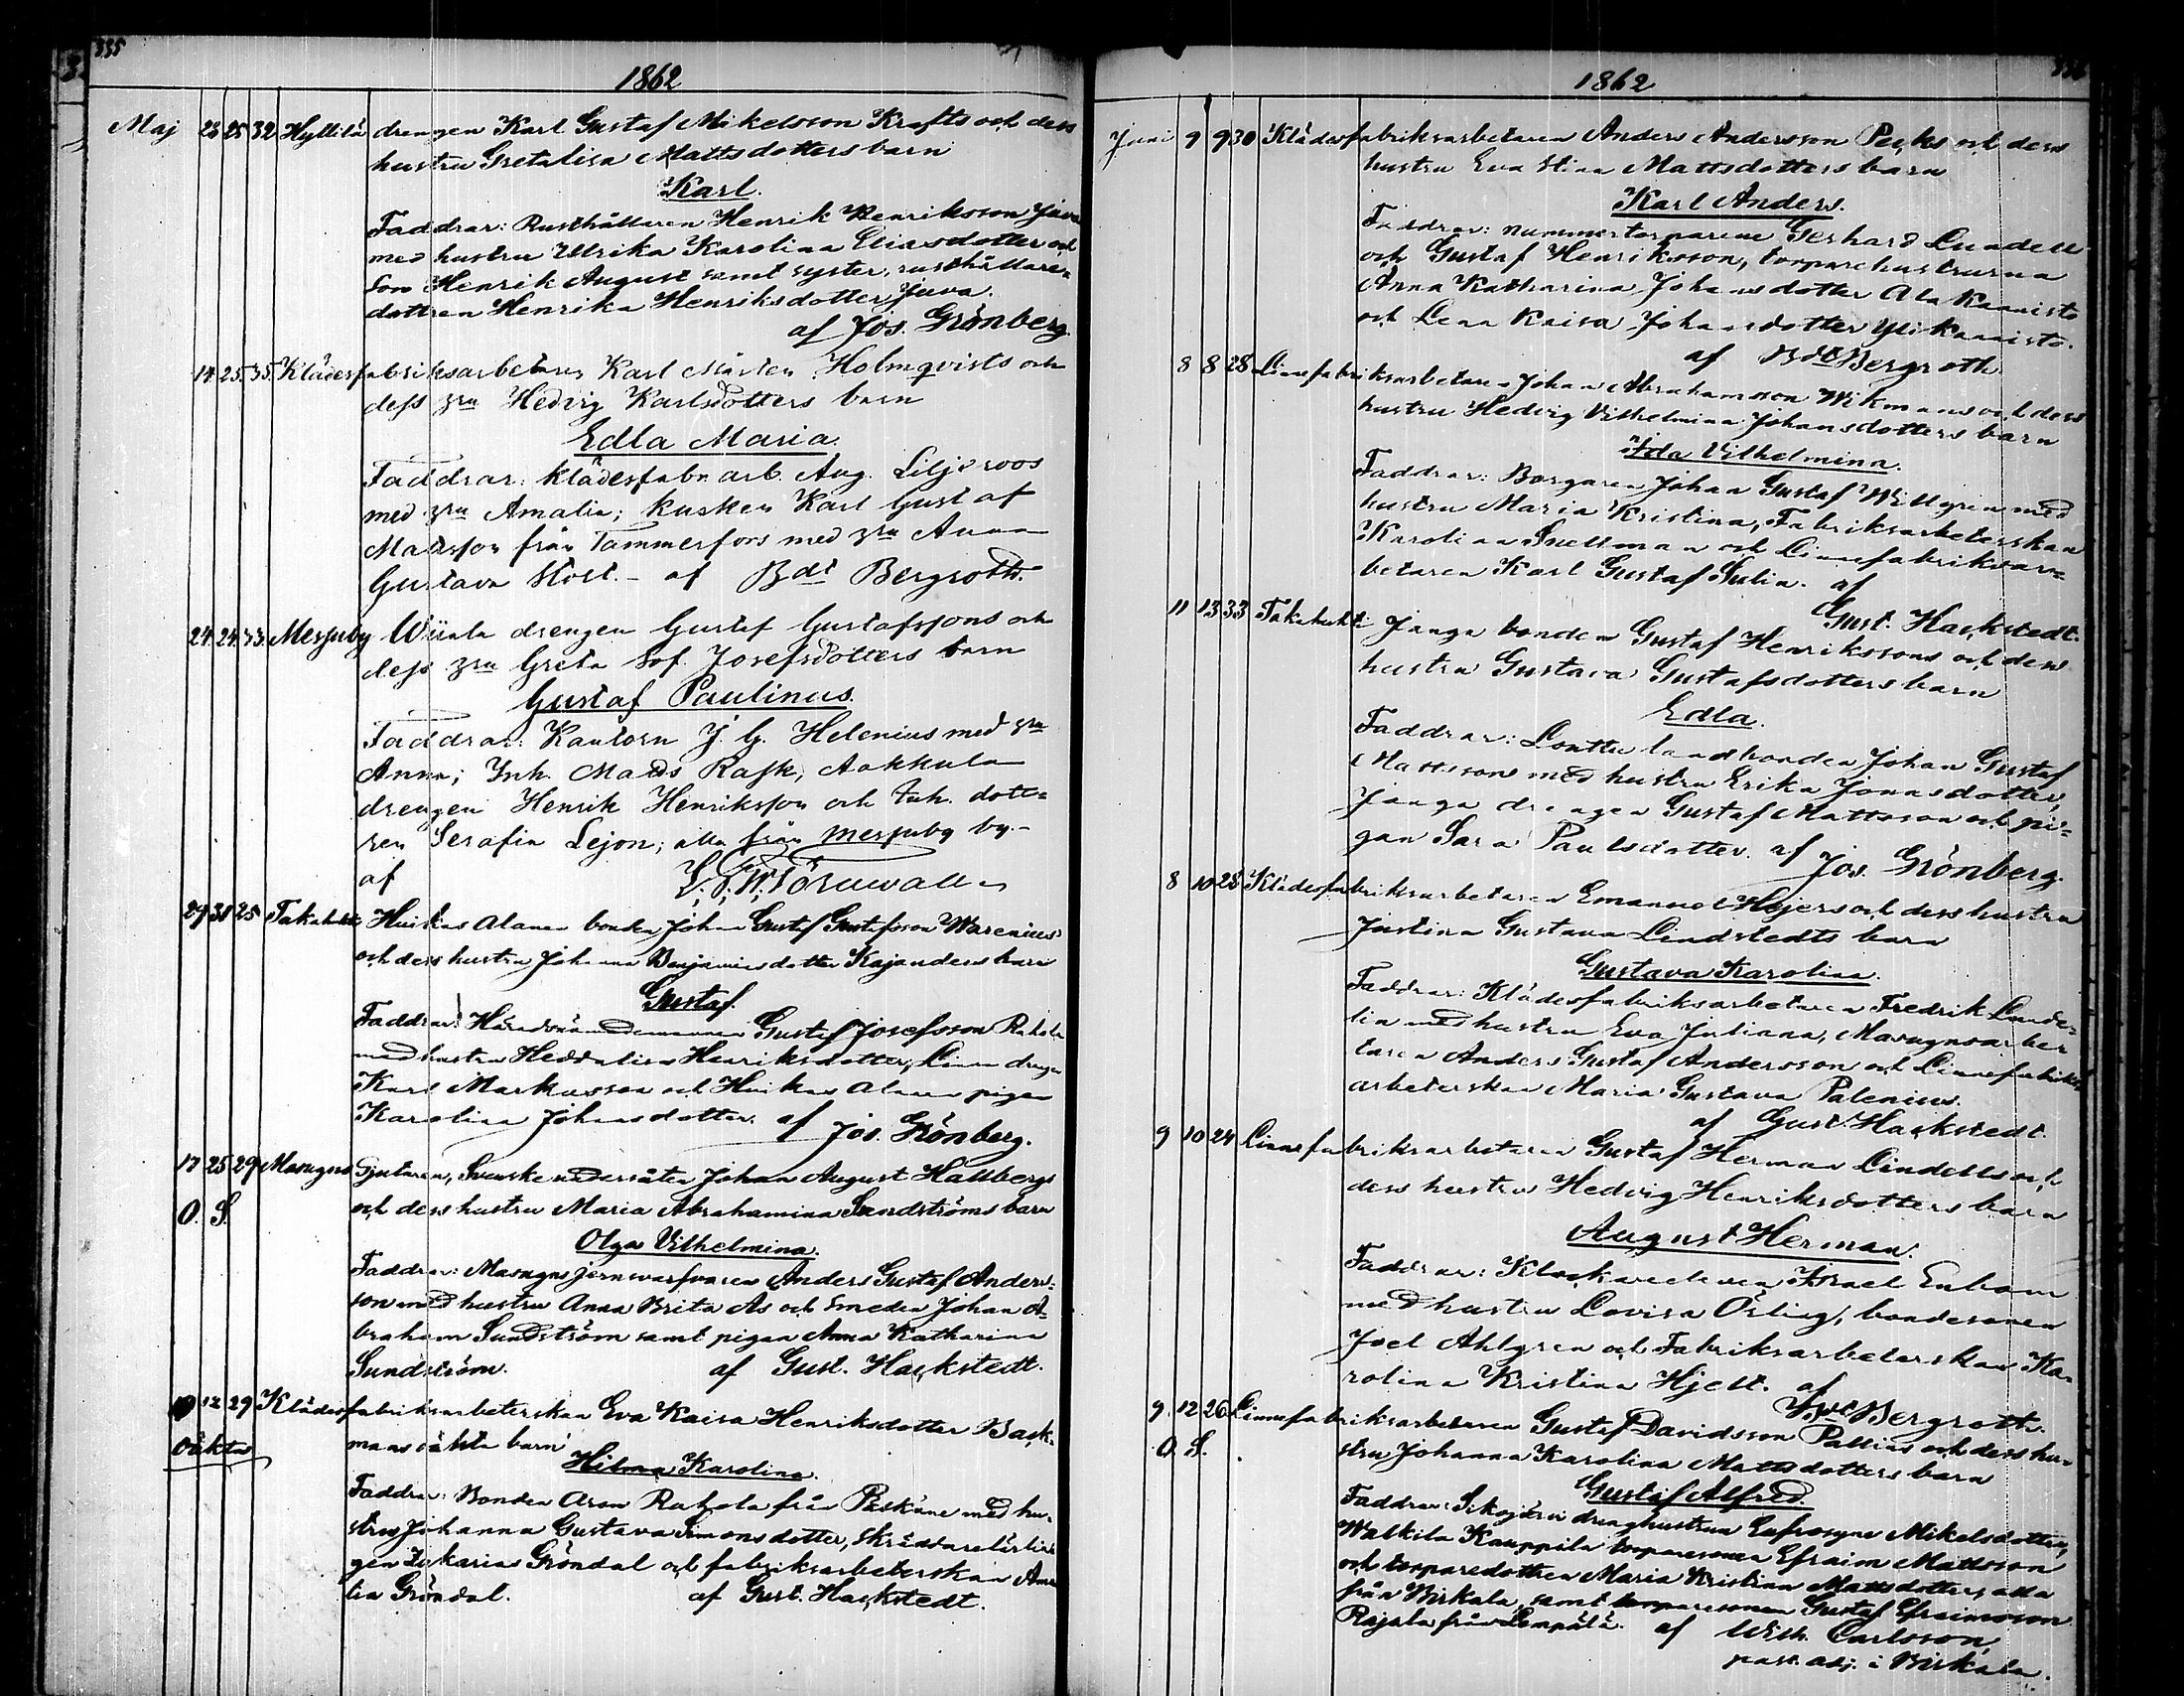 335
1862
Maj 23 25 32 Hyllilä drengen Karl Gustaf Mikelsson Krafts och dess
hustru Gretalisa Mattsdotters barn
Karl.
Faddrar: Rusthållaren Henrik Henriksson Juva
med hustru Ulrika Karolina Eliasdotter och
Son Henrik August samt syster, rusthållare=
dottren Henrika Henriksdotter Juva.
af Jos. Grönberg.
14. 25. 35. Klädesfabriksarbetaren Karl Mårten Holmqvists och
dess hru Hedvig Karlsdotters barn
Edla Maria.
Faddrar: klädesfabr. arb. Aug. Liljeroos
med hru Amalia; kusken Karl Gustaf
Matsson från Tammerfors med hru Anna
Gustava Kost. - af Bdt Bergroth.
24. 24. 33. Messuby Wiiala drengen Gustaf Gustafssons och
dess hru Greta Sof. Josefsdotters barn
Gustaf Paulinus.
Faddrar: Kantorn J. G. Helenius med hru
Anna; Inh. Mads Rask, Aakkula
drengen Henrik Henriksson och Inh. dott=
ren Serafia Lejon; alla från Messuby by.-
af
29 31 25 Takahuhti Huikas Alanen bonden Johan Gustaf Gustafsson Warenius
och dess hustru Johanna Benjaminsdotter Kajanders barn
Gustaf.
Faddrar: Häradsnämndemannen Gustaf Josefsson Rahola
med hustru Heddalisa Henriksdotter, Linna drengen
Karl Markusson och Huikas Alanen pigan
Karolina Johansdotter. af Jos. Grönberg.
17 25 29 Masugns Gjutaren, Svenske undersåten Johan August Hallbergs
O. S. och dess hustru Maria Abrahamina Sundströms barn
Olga Vilhelmina.
Faddrar: Masugns jernvarfvaren Anders Gustaf Anders=
son med hustru Anna Brita As och Smeden Johan A=
braham Sundström samt pigan Anna Katharina
Sundström. af Gust. Hackstedt.
10 12 29 Klädesfabriksarbeterskan Eva Kaisa Henriksdotter Back=
Oäkta mans oäkta barn
Hilma Karolina.
Faddrar: Bonden Aron Rahola från Päskäne med hu=
stru Johanna Gustava Simonsdotter, Skräddarelärlin
gen Zakarias Gröndal och fabriksarbeterskan Ama
lia Gröndal. af Gust. Hackstedt.
336
1862
Juni 9 9 30 Klädesfabriksarbetaren Anders Andersson Pecks och dess
hustru Eva Stina Mattsdotters barn
Karl Anders.
Faddrar: nummertorparene Gerhard Lundell
och Gustaf Henriksson, torparehustrurna
Anna Katharina Johansdotter Ala Kaanisto
och Lena Kaisa Johansdotter Yli kaanisto.
af Bdt Bergroth.
8 8 28 Linnefabriksarbetaren Johan Abrahamsson Wikmans och dess
hustru Hedvig Vilhelmina Johansdotters barn
Ida Vilhelmina.
Faddrar: Borgaren Johan Gustaf Willgren med
hustru Maria Kristina, Fabriksarbeterskan
Karolina Snellman och Linnefabriksar=
betaren Karl Gustaf Sulin. af
Gust. Hackstedt.
11 13 33 Takahuhti Janga bonden Gustaf Henrikssons och dess
hustru Gustava Gustafsdotters barn
Edla.
Faddrar: Lonttu landbonden Johan Gustaf
Mattsson med hustru Erika Jonasdotter,
Janga drengen Gustaf Mattsson och pi=
gan Sara Paulsdotter. af
Jos. Grönberg.
8 10 28 Klädesfabriksarbetaren Emanuel Hejers och dess hustru
Justina Gustava Lindstedts barn
Gustava Karolina.
Faddrar: Klädesfabriksarbetaren Fredrik Linde=
lin med hustru Eva Juliana, Masugnsarbe
taren Anders Gustaf Andersson och Linnefabriks
arbeterskan Maria Gustava Palenius.
af Gust. Hackstedt.
9 10 24 Linnefabriksarbetaren Gustaf Herman Lindells och
dess hustru Hedvig Henriksdotters barn
August Herman.
Faddrar: Klockareeleven Israel Enbom
med hustru Lovisa Örling, bondesonen
Joel Ahlgren och Fabriksarbeterskan Ka=
rolina Kristina Hjelt. af
Bdt Bergroth.
9. 12 26 Linnefabriksarbetaren Gustaf Davidsson Pallias och dess hu=
O. S. stru Johanna Karolina Mattsdotters barn
Gustaf Alfred.
Faddrar: dreng hustrun Eufrosyne Mikelsdotter,
Walkila Kauppila torparesonen Efraim Mattsson
och torparedottren Maria Kristina Mattsdotter, alla
från Birkala, samt torparesonen Gustaf Efraimsson
Rajala från Lempälä. af Wilh. Carlsson,
past. adj. i Birkala.